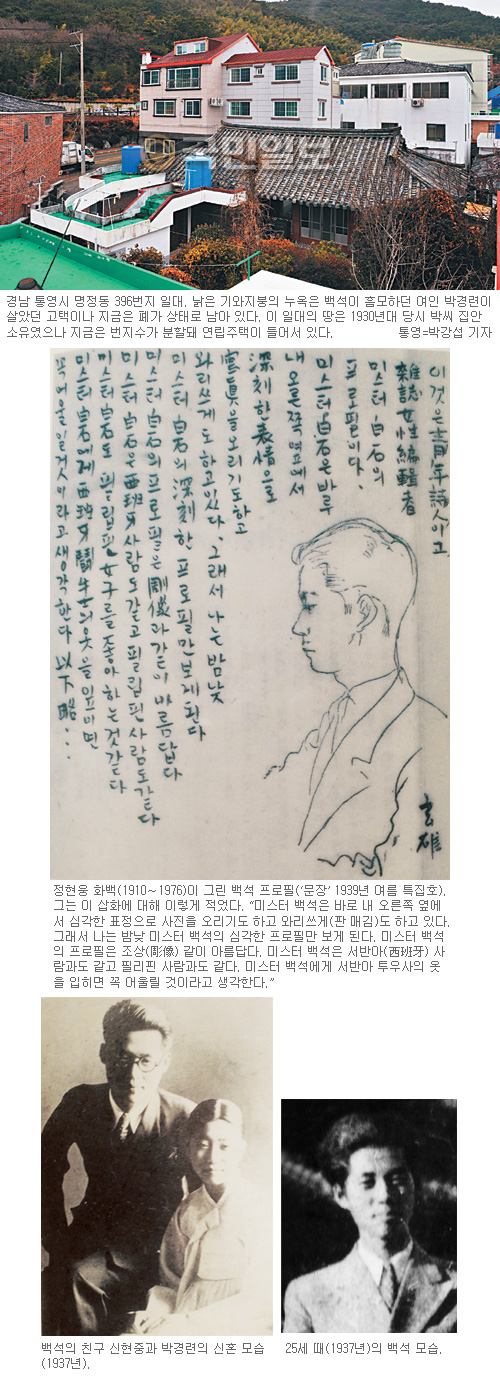 국민일보
경남 통영시 명정동 396번지 일대. 낡은 기와지붕의 누옥은 백석이 흠모하던 여인 박경련이
살았던 고택이나 지금은 폐가 상태로 남아 있다. 이 일대의 땅은 1930년대 당시 박씨 집안
소유였으나 지금은 번지수가 분할돼 연립주택이 들어서 있다. 통영=박강섭 기자
이것은 靑年詩人이고
雜誌女性編輯者
미스터 白石의
프로필이다.
미스터 白石은 바루
내 오른쪽 옆에서
深刻한 表情으로
寫眞을 오리기도 하고
와리쓰게도 하고 있다. 그래서 나는 밤낮
미스터 白石의 深刻한 프로필만 보게 된다
미스터 白石의 프로필은 彫像과 같이 아름답다
미스터 白石은 西班牙 사람도 같고 필립핀 사람도 같다
미스터 白石도 필립핀 女子를 좋아하는 것 같다
미스터 白石에게 西班牙 鬪牛士의 옷을 입히면
꼭 어울일 것이라고 생각한다 以下 略...
玄雄
정현웅 화백(1910~1976)이 그린 백석 프로필('문장' 1939년 여름 특집호).
그는 이 삽화에 대해 이렇게 적었다. "미스터 백석은 바로 내 오른쪽 옆에
서 심각한 표정으로 사진을 오리기도 하고 와리쓰게(판 매김)도 하고 있다.
그래서 나는 밤낮 미스터 백석의 심각한 프로필만 보게 된다. 미스터 백석
의 프로필은 조상(彫像) 같이 아름답다. 미스터 백석은 서반아(西班牙) 사
람과도 같고 필리핀 사람과도 같다. 미스터 백석에게 서반아 투우사의 옷
을 입히면 꼭 어울릴 것이라고 생각한다."
백석의 친구 신현중과 박경련의 신혼 모습
(1937년).
25세 때(1937년)의 백석 모습.